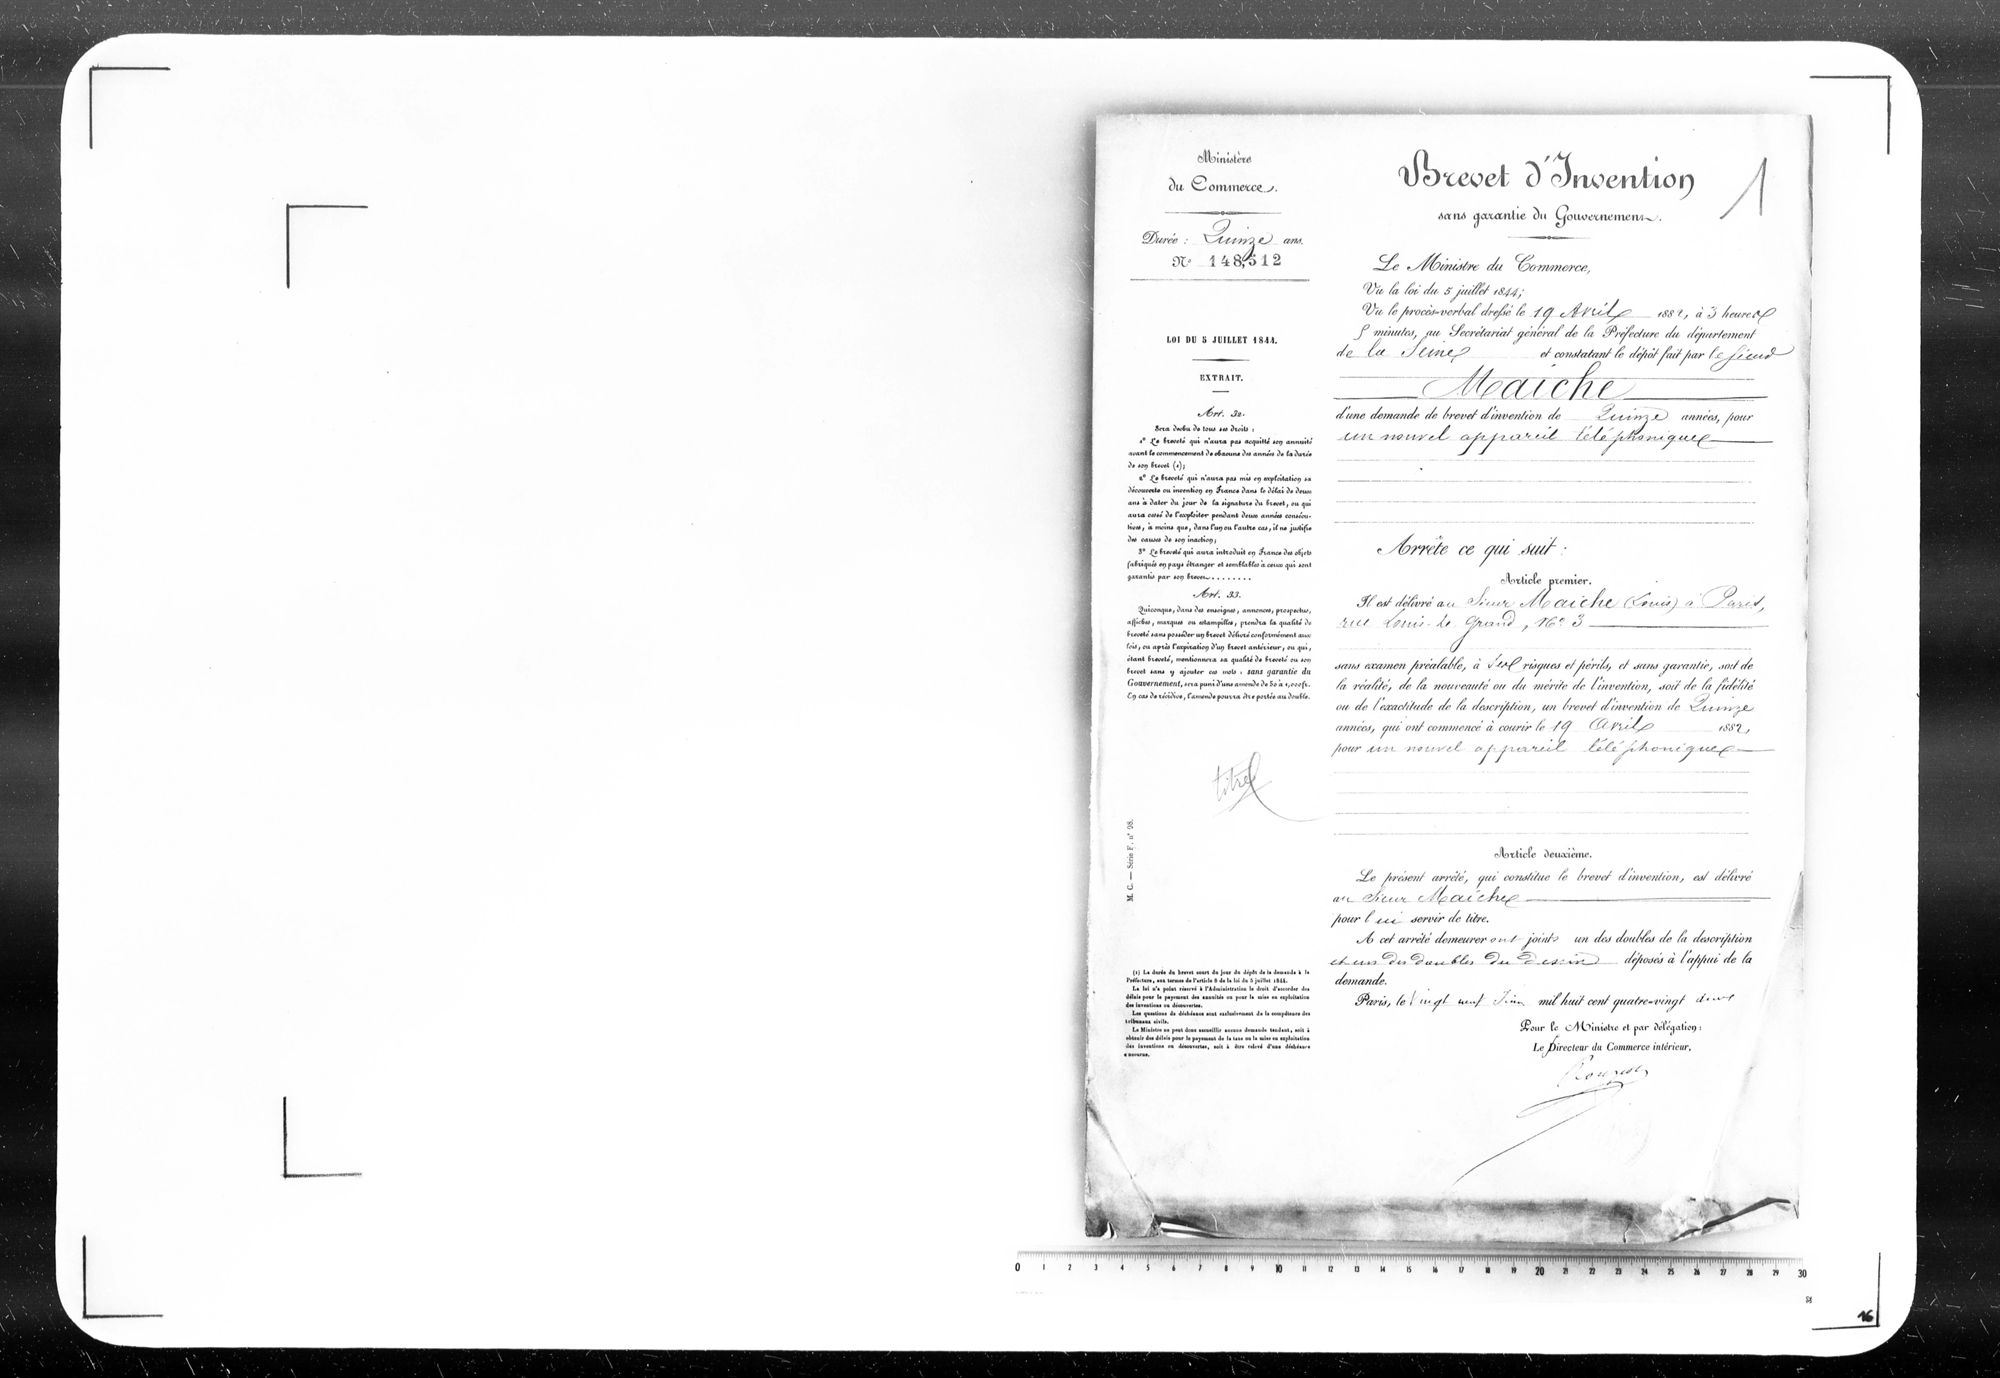 Ministère
du Commerce.
Durée : Quinze ans.
N° 148,512
LOI DU 5 JUILLET 1844.
EXTRAIT.
Art. 32.
Sera déchu de tous ses droits :
1° Le breveté qui n'aura pas acquitté son annuité
avant le commencement de chacune des années de la durée
de son brevet (1);
2° Le breveté qui n'aura pas mis en exploitation sa
découverte ou invention en France dans le délai de deux
ans à dater du jour de la signature du brevet, ou qui
aura cessé de l'exploiter pendant deux années consécu-
tives, à moins que, dans l'un ou l'autre cas, il ne justifie
des causes de son inaction;
3° Le breveté qui aura introduit en France des objets
fabriqués en pays étranger et semblables à ceux qui sont
garantis par son brevet........
Art. 33.
Quiconque, dans des enseignes, annonces, prospectus,
affiches, marques ou estampilles, prendra la qualité de
breveté sans posséder un brevet délivré conformément aux
lois, ou après l'expiration d'un brevet antérieur, ou qui,
étant breveté, mentionnera sa qualité de breveté ou son
brevet sans y ajouter ces mots : sans garantie du
Gouvernement, sera puni d'une amende de 50 à 1,000 fr.
En cas de récidive, l'amende pourra être portée au double.
titre
M. C. — Série F, n° 98.
(1) La durée du brevet court du jour du dépôt de la demande à la
Préfecture, aux termes de l'article 8 de la loi du 5 juillet 1844.
La loi n'a point réservé à l'Administration le droit d'accorder des
délais pour le payement des annuités ou pour la mise en exploitation
des inventions ou découvertes.
Les questions de déchéance sont exclusivement de la compétence des
tribunaux civils.
Le Ministre ne peut donc accueillir aucune demande tendant, soit à
obtenir des délais pour le payement de la taxe ou la mise en exploitation
des inventions ou découvertes, soit à être relevé d'une déchéance
encourue.
Brevet d'Invention
1
sans garantie du Gouvernement.
Le Ministre du Commerce,
Vu la loi du 5 juillet 1844;
Vu le procès-verbal dressé le 19 Avril 1882, à 3 heures
5 minutes, au Secrétariat général de la Préfecture du département
de la Seine et constatant le dépôt fait par le Sieur
Maiche
d'une demande de brevet d'invention de Quinze années, pour
un nouvel appareil téléphonique
Arrête ce qui suit :
Article premier.
Il est délivré au Sieur Maiche (Louis) à Paris,
rue Louis-le Grand, N° 3
sans examen préalable, à ses risques et périls, et sans garantie, soit de
la réalité, de la nouveauté ou du mérite de l'invention, soit de la fidélité
ou de l'exactitude de la description, un brevet d'invention de Quinze
années, qui ont commencé à courir le 19 Avril 1882,
pour un nouvel appareil téléphonique
Article deuxième.
Le présent arrêté, qui constitue le brevet d'invention, est délivré
au Sieur Maiche
pour lui servir de titre.
A cet arrêté demeureront joints un des doubles de la description
et un des doubles du dessin déposés à l'appui de la
demande.
Paris, le vingt neuf Juin mil huit cent quatre-vingt deux
Pour le Ministre et par délégation :
Le Directeur du Commerce intérieur,
0 1 2 3 4 5 6 7 8 9 10 11 12 13 14 15 16 17 18 19 20 21 22 23 24 25 26 27 28 29 30
16